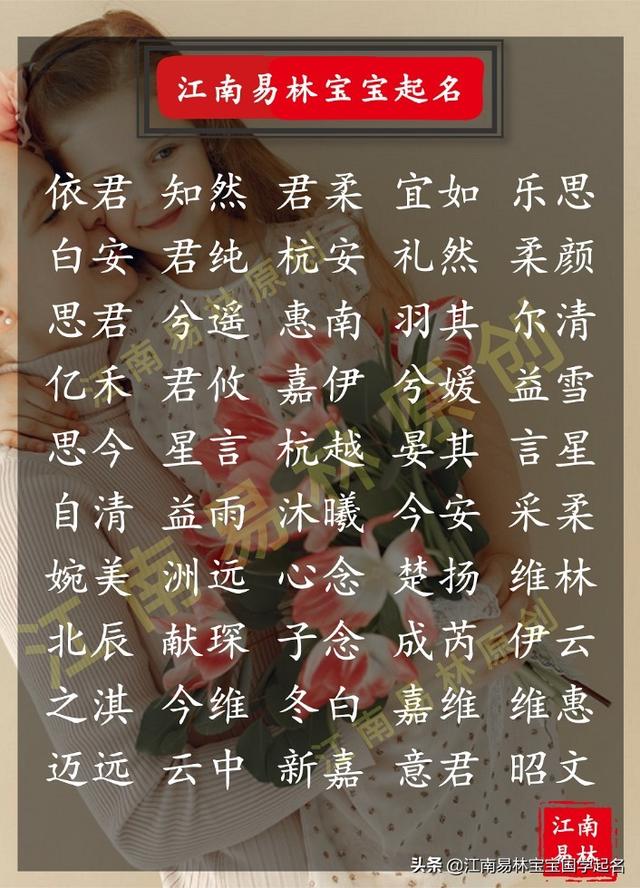 江南易林宝宝起名
依君 知然 君柔 宜如 乐思
白安 君纯 杭安 礼然 柔颜
思君 兮遥 惠南 羽其 尔清
亿禾 君攸 嘉伊 兮媛 益雪
思今 星言 杭越 晏其 言星
自清 益雨 沐曦 今安 采柔
婉美 洲远 心念 楚扬 维林
北辰 献琛 子念 成芮 伊云
之淇 今维 冬白 嘉维 维惠
迈远 云中 新嘉 意君 昭文
江南易林原创
江南易林原创
江南易林原创
江南
易林
头条 @江南易林宝宝国学起名